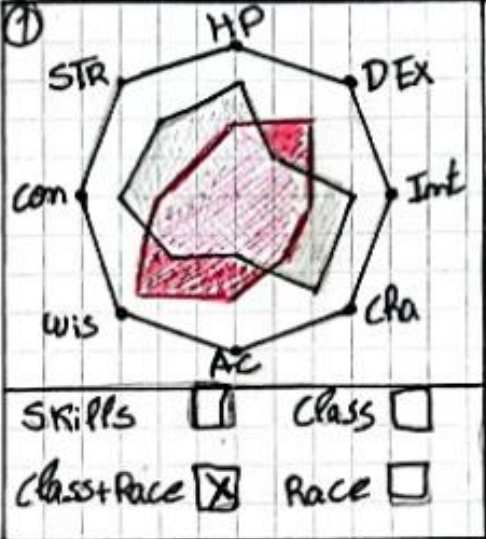 1
HP
STR DEX
Con Int
Wis Cha
AC
Skills Class
Class+Race X Race